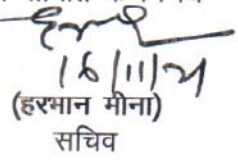 16/11/21
(हरभान मीना)
सचिव